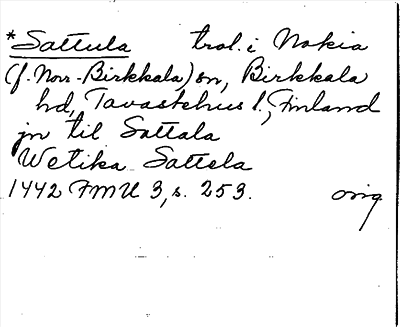 *Sattula trol. i Nokia
(f. Norr-Birkkala) sn, Birkkala
hd, Tavastehus l., Finland
jn til Sattala
Wetika Sattela
1442 FMU 3, s. 253. orig